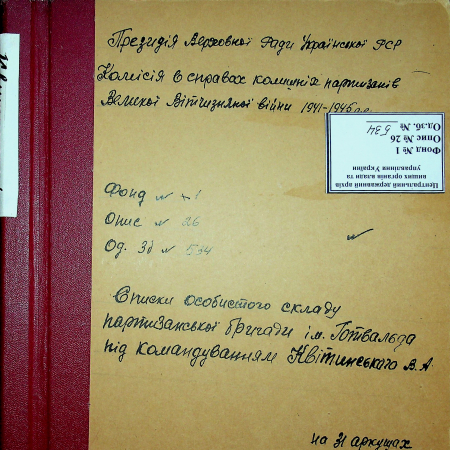 Президія Верховної Ради Української РСР
Комісія в справах колишніх партизанів
Великої Вітчизняної війни 1941-1945 р.р.
Центральний державний архів
вищих органів влади та
управління України
Фонд № 1
Опис № 26
Од.зб. № 534
Фонд № 1
Опис № 26
Од. Зб № 534
Списки особистого складу
партизанської бригади ім. Готвальда
під командуванням Квітинського В.А.
на 31 аркушах